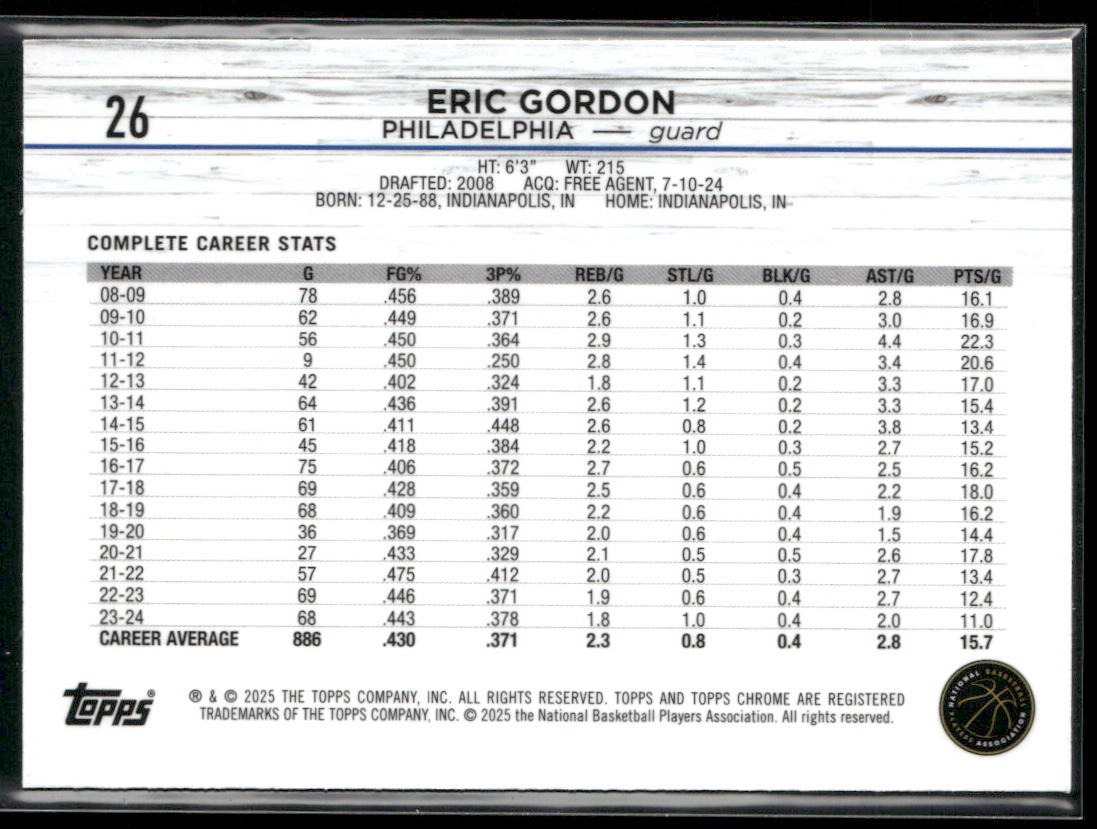 26
ERIC GORDON
PHILADELPHIA — guard
HT: 6'3" WT: 215
DRAFTED: 2008 ACQ: FREE AGENT, 7-10-24
BORN: 12-25-88, INDIANAPOLIS, IN HOME: INDIANAPOLIS, IN
COMPLETE CAREER STATS
YEAR G FG% 3P% REB/G STL/G BLK/G AST/G PTS/G
08-09 78 .456 .389 2.6 1.0 0.4 2.8 16.1
09-10 62 .449 .371 2.6 1.1 0.2 3.0 16.9
10-11 56 .450 .364 2.9 1.3 0.3 4.4 22.3
11-12 9 .450 .250 2.8 1.4 0.4 3.4 20.6
12-13 42 .402 .324 1.8 1.1 0.2 3.3 17.0
13-14 64 .436 .391 2.6 1.2 0.2 3.3 15.4
14-15 61 .411 .448 2.6 0.8 0.2 3.8 13.4
15-16 45 .418 .384 2.2 1.0 0.3 2.7 15.2
16-17 75 .406 .372 2.7 0.6 0.5 2.5 16.2
17-18 69 .428 .359 2.5 0.6 0.4 2.2 18.0
18-19 68 .409 .360 2.2 0.6 0.4 1.9 16.2
19-20 36 .369 .317 2.0 0.6 0.4 1.5 14.4
20-21 27 .433 .329 2.1 0.5 0.5 2.6 17.8
21-22 57 .475 .412 2.0 0.5 0.3 2.7 13.4
22-23 69 .446 .371 1.9 0.6 0.4 2.7 12.4
23-24 68 .443 .378 1.8 1.0 0.4 2.0 11.0
CAREER AVERAGE 886 .430 .371 2.3 0.8 0.4 2.8 15.7
topps®
® & © 2025 THE TOPPS COMPANY, INC. ALL RIGHTS RESERVED. TOPPS AND TOPPS CHROME ARE REGISTERED
TRADEMARKS OF THE TOPPS COMPANY, INC. © 2025 the National Basketball Players Association. All rights reserved.
NATIONAL BASKETBALL
PLAYERS ASSOCIATION